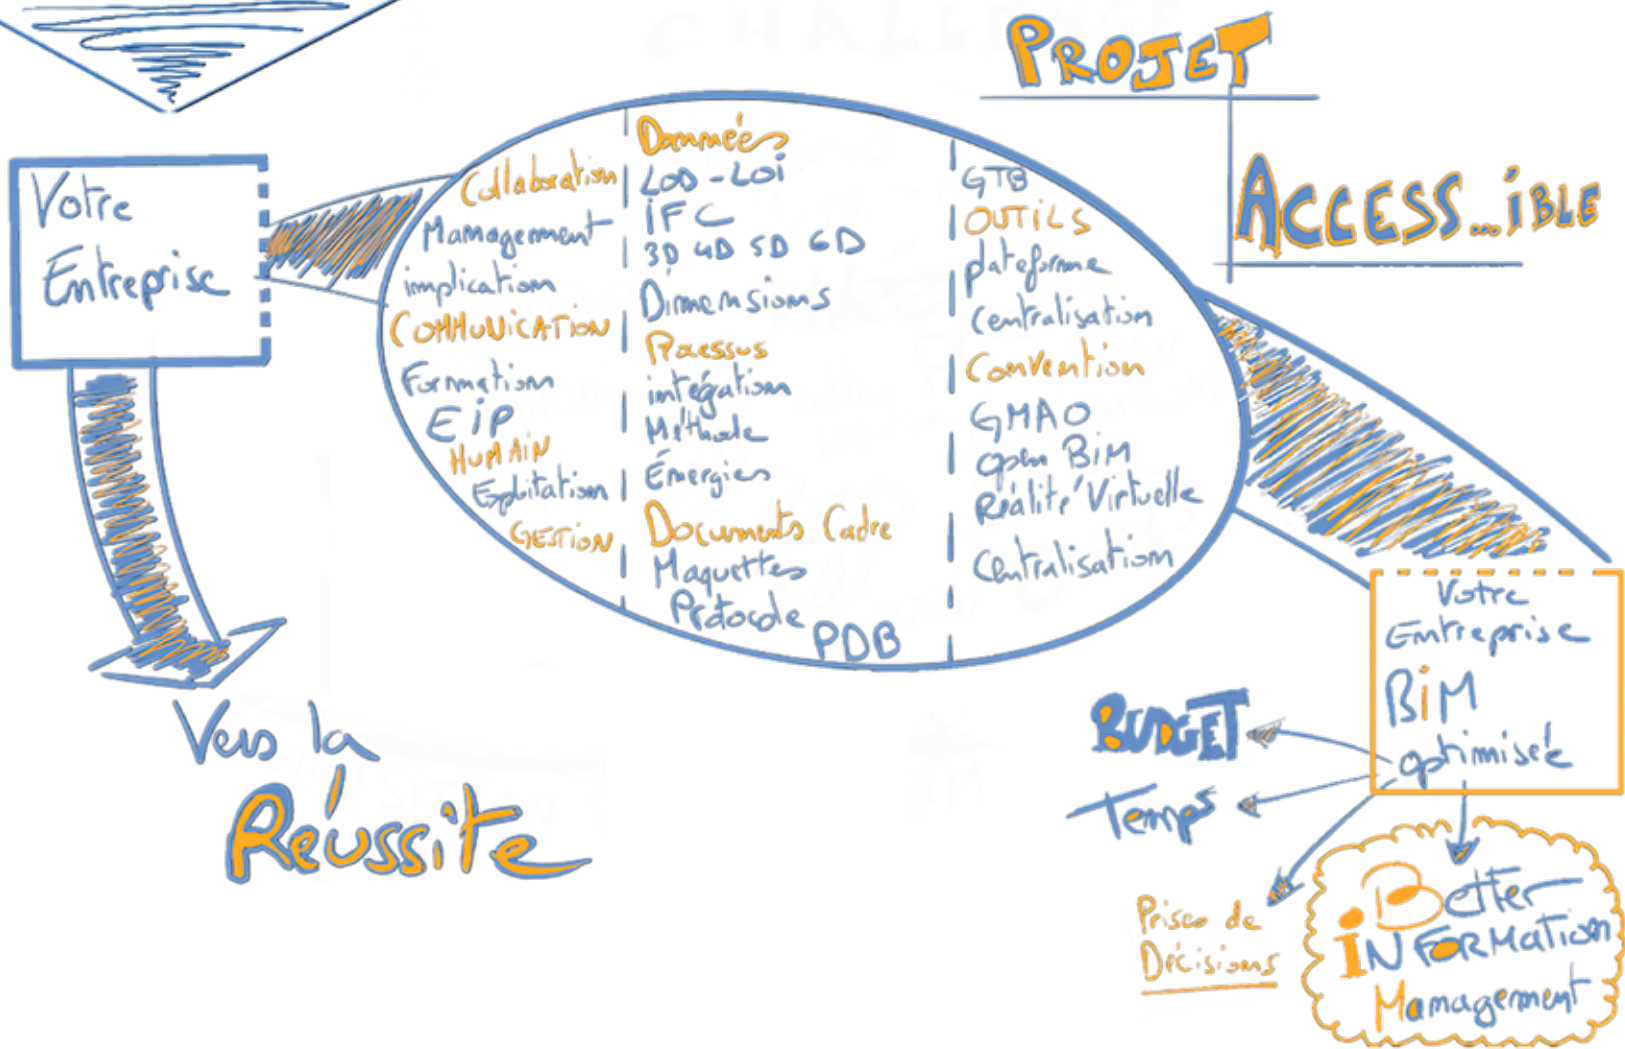 PROJET
ACCESS...iBLE
Votre
Entreprise
Collaboration
Management
implication
COMMUNiCATiON
Formation
EiP
HUMAiN
Exploitation
GESTiON
Données
LOD - LOi
iFC
3D 4D 5D 6D
Dimensions
Processus
intégration
Méthode
Énergies
Documents Cadre
Maquettes
Protocole
PDB
GTB
OUTiLS
plateforme
Centralisation
Convention
GMAO
open BiM
Réalité Virtuelle
Centralisation
Vers la
Réussite
Votre
Entreprise
BiM
optimisée
BUDGET
Temps
Prises de
Décisions
Better
iNFORMATiON
Management